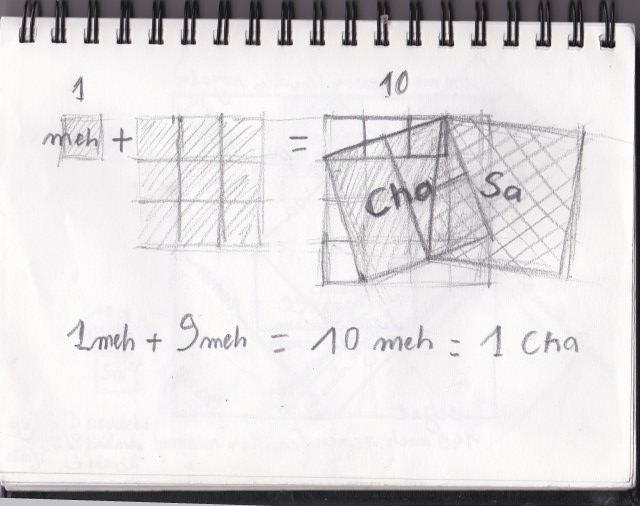 1 10
meh + =
Cha Sa
1 meh + 9 meh = 10 meh = 1 Cha